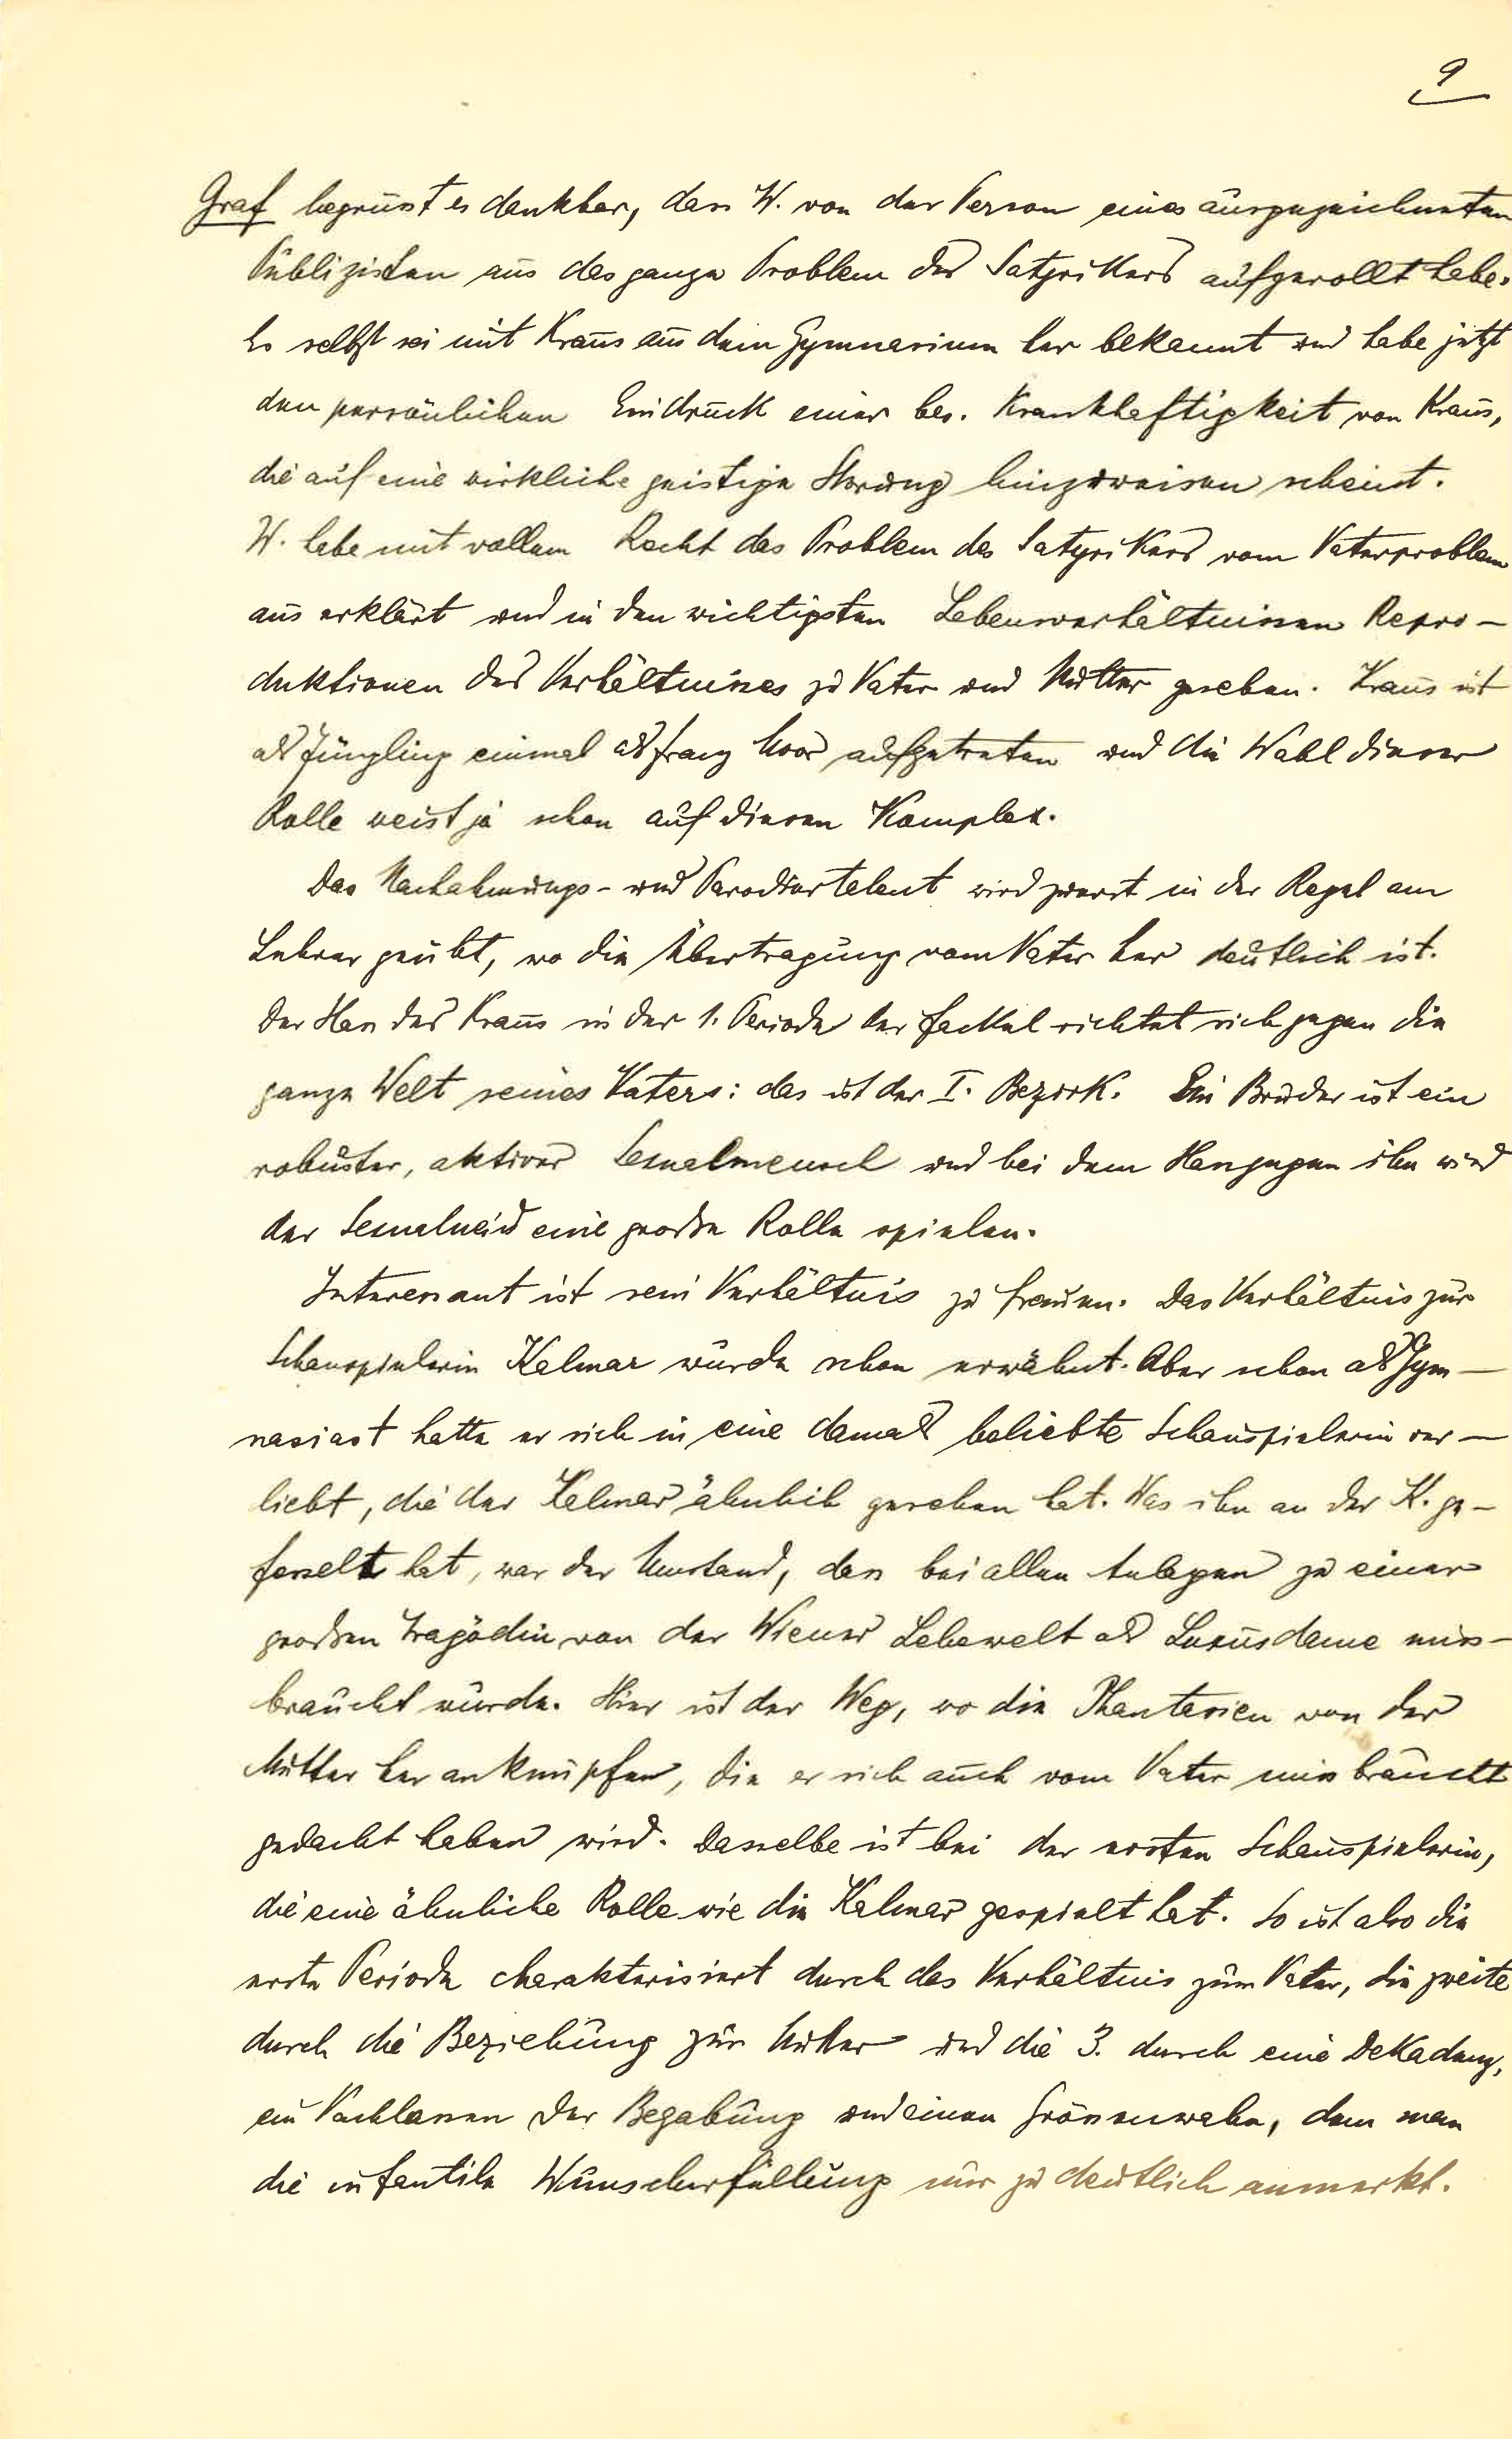 9
Graf begrüsst es dankbar, dass W. von der Person eines ausgezeichneten
Publizisten aus das ganze Problem des Satyrikers aufgerollt habe.
Er selbst sei mit Kraus aus dem Gymnasium her bekannt und habe jetzt
den persönlichen Eindruck einer bes. Krankhaftigkeit von Kraus,
die auf eine wirkliche geistige Störung hinzuweisen scheint.
W. habe mit vollem Recht das Problem des Satyrikers vom Vaterproblem
aus erklärt und in den wichtigsten Lebensverhältnissen Repro-
duktionen des Verhältnisses zu Vater und Mutter gesehen. Kraus ist
als Jüngling einmal als Franz Moor aufgetreten und die Wahl dieser
Rolle weist ja schon auf diesen Komplex.
Das Nachahmungs- und Parodiertalent wird zuerst in der Regel am
Lehrer geübt, wo die Übertragung vom Vater her deutlich ist.
Der Hass des Kraus in der 1. Periode der Fackel richtet sich gegen die
ganze Welt seines Vaters: das ist der I. Bezirk. Ein Bruder ist ein
robuster, aktiver Sexualmensch und bei dem Hass gegen ihn wird
der Sexualneid eine grosse Rolle spielen.
Interessant ist sein Verhältnis zu Frauen. Das Verhältnis zur
Schauspielerin Kalmar wurde schon erwähnt. Aber schon als Gym-
nasiast hatte er sich in eine damals beliebte Schauspielerin ver-
liebt, die der Kalmar ähnlich gesehen hat. Was ihn an der K. ge-
fesselt hat, war der Umstand, dass bei allen Anlagen zu einer
grossen Tragödin von der Wiener Lebewelt als Luxusdame miss-
braucht wurde. Hier ist der Weg, wo die Phantasien von der
Mutter her anknüpfen, die er sich auch vom Vater missbraucht
gedacht haben wird. Dasselbe ist bei der ersten Schauspielerin,
die eine ähnliche Rolle wie die Kalmar gespielt hat. So ist also die
erste Periode charakterisiert durch das Verhältnis zum Vater, die zweite
durch die Beziehung zur Mutter und die 3. durch eine Dekadenz,
ein Nachlassen der Begabung und einen Grössenwahn, dem man
die infantile Wunscherfüllung nur zu deutlich anmerkt.